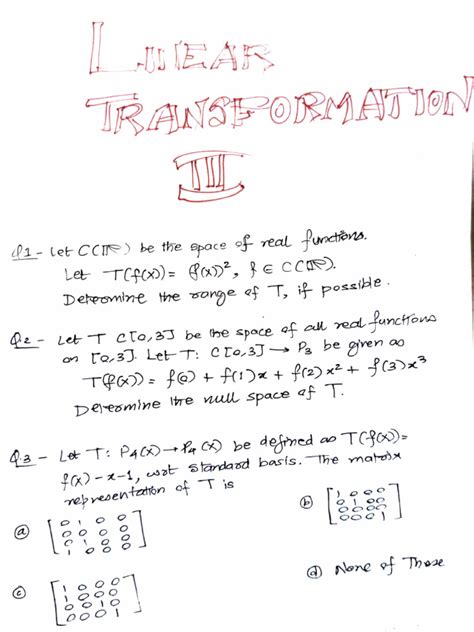 LINEAR
TRANSFORMATION
III
Q1 - Let C(ℝ) be the space of real functions.
Let T(f(x)) = (f(x))², f ∈ C(ℝ).
Determine the range of T, if possible.
Q2 - Let T C[0,3] be the space of all real functions
on [0,3]. Let T: C[0,3] → P₃ be given as
T(f(x)) = f(0) + f(1)x + f(2)x² + f(3)x³
Determine the null space of T.
Q.3 - Let T: P₄(x) → P₄(x) be defined as T(f(x)) =
f(x) - x - 1, wrt standard basis. The matrix
representation of T is
(a)
(b)
(c)
(d) None of These